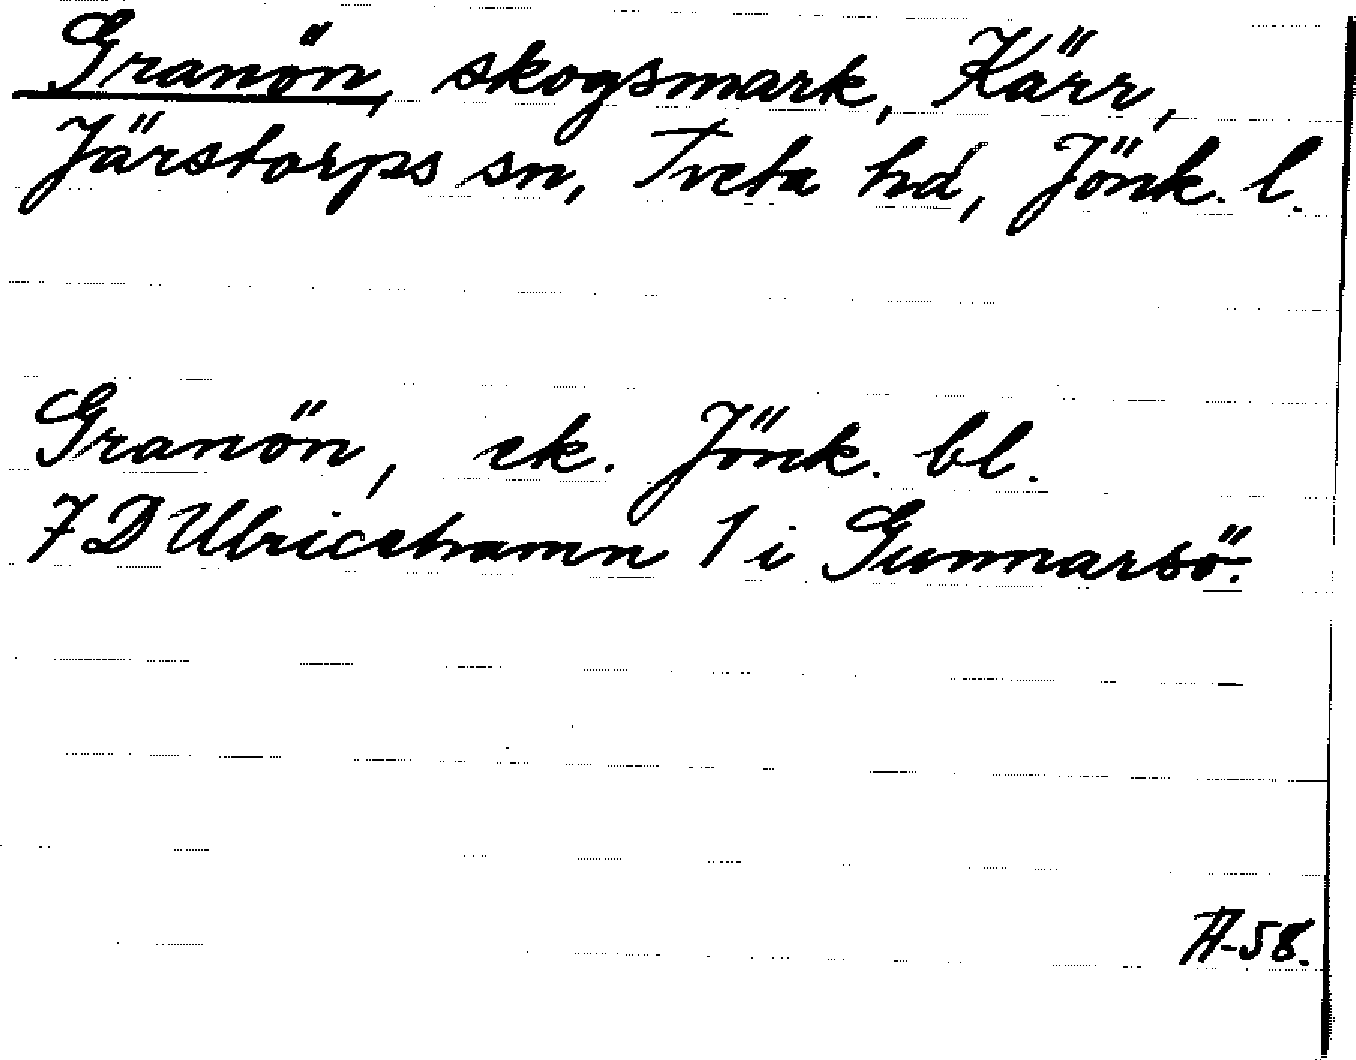 Granön, skogsmark, Kärr,
Järstorps sn, Tveta hd, Jönk. l.
Granön, ek. Jönk. bl.
7 D Ulricehamn 1 i Gunnarsö.
-58.